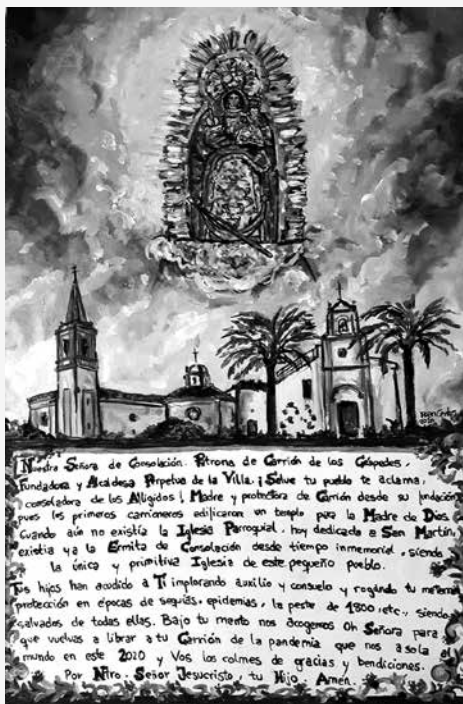 Nuestra Señora de Consolación. Patrona de Carrión de los Céspedes,
Fundadora y Alcaldesa Perpetua de la Villa. ¡Salve tu pueblo te aclama,
consoladora de los Afligidos! Madre y protectora de Carrión desde su fundación
pues los primeros carrioneros edificaron un templo para la Madre de Dios.
Cuando aún no existía la Iglesia Parroquial, hoy dedicada a San Martín,
existía ya la Ermita de Consolación desde tiempo inmemorial, siendo
la única y primitiva Iglesia de este pequeño pueblo.
Tus hijos han acudido a Ti implorando auxilio y consuelo y rogando tu maternal
protección en épocas de sequías, epidemias, la peste de 1800, etc., siendo
salvados de todas ellas. Bajo tu manto nos acogemos Oh Señora para
que vuelvas a librar a tu Carrión de la pandemia que nos asola el
mundo en este 2020 y Vos los colmes de gracias y bendiciones.
Por Ntro. Señor Jesucristo, tu Hijo. Amen.